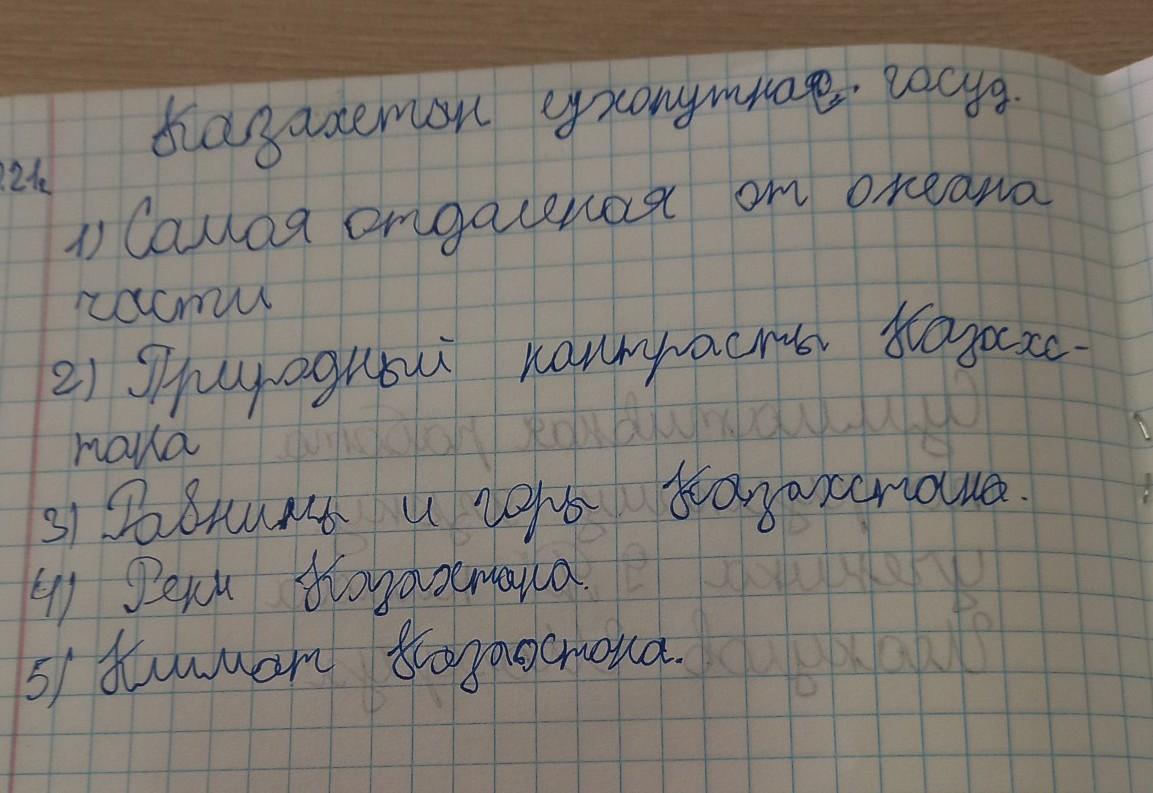 Казахстан сухопутная. госуд.
1) Самая отдаленая от океана
части
2) Природный контрасты Казахс-
тана
3) Равнины и горы Казахстана.
4) Реки Казахстана.
5) Климат Казахстана.